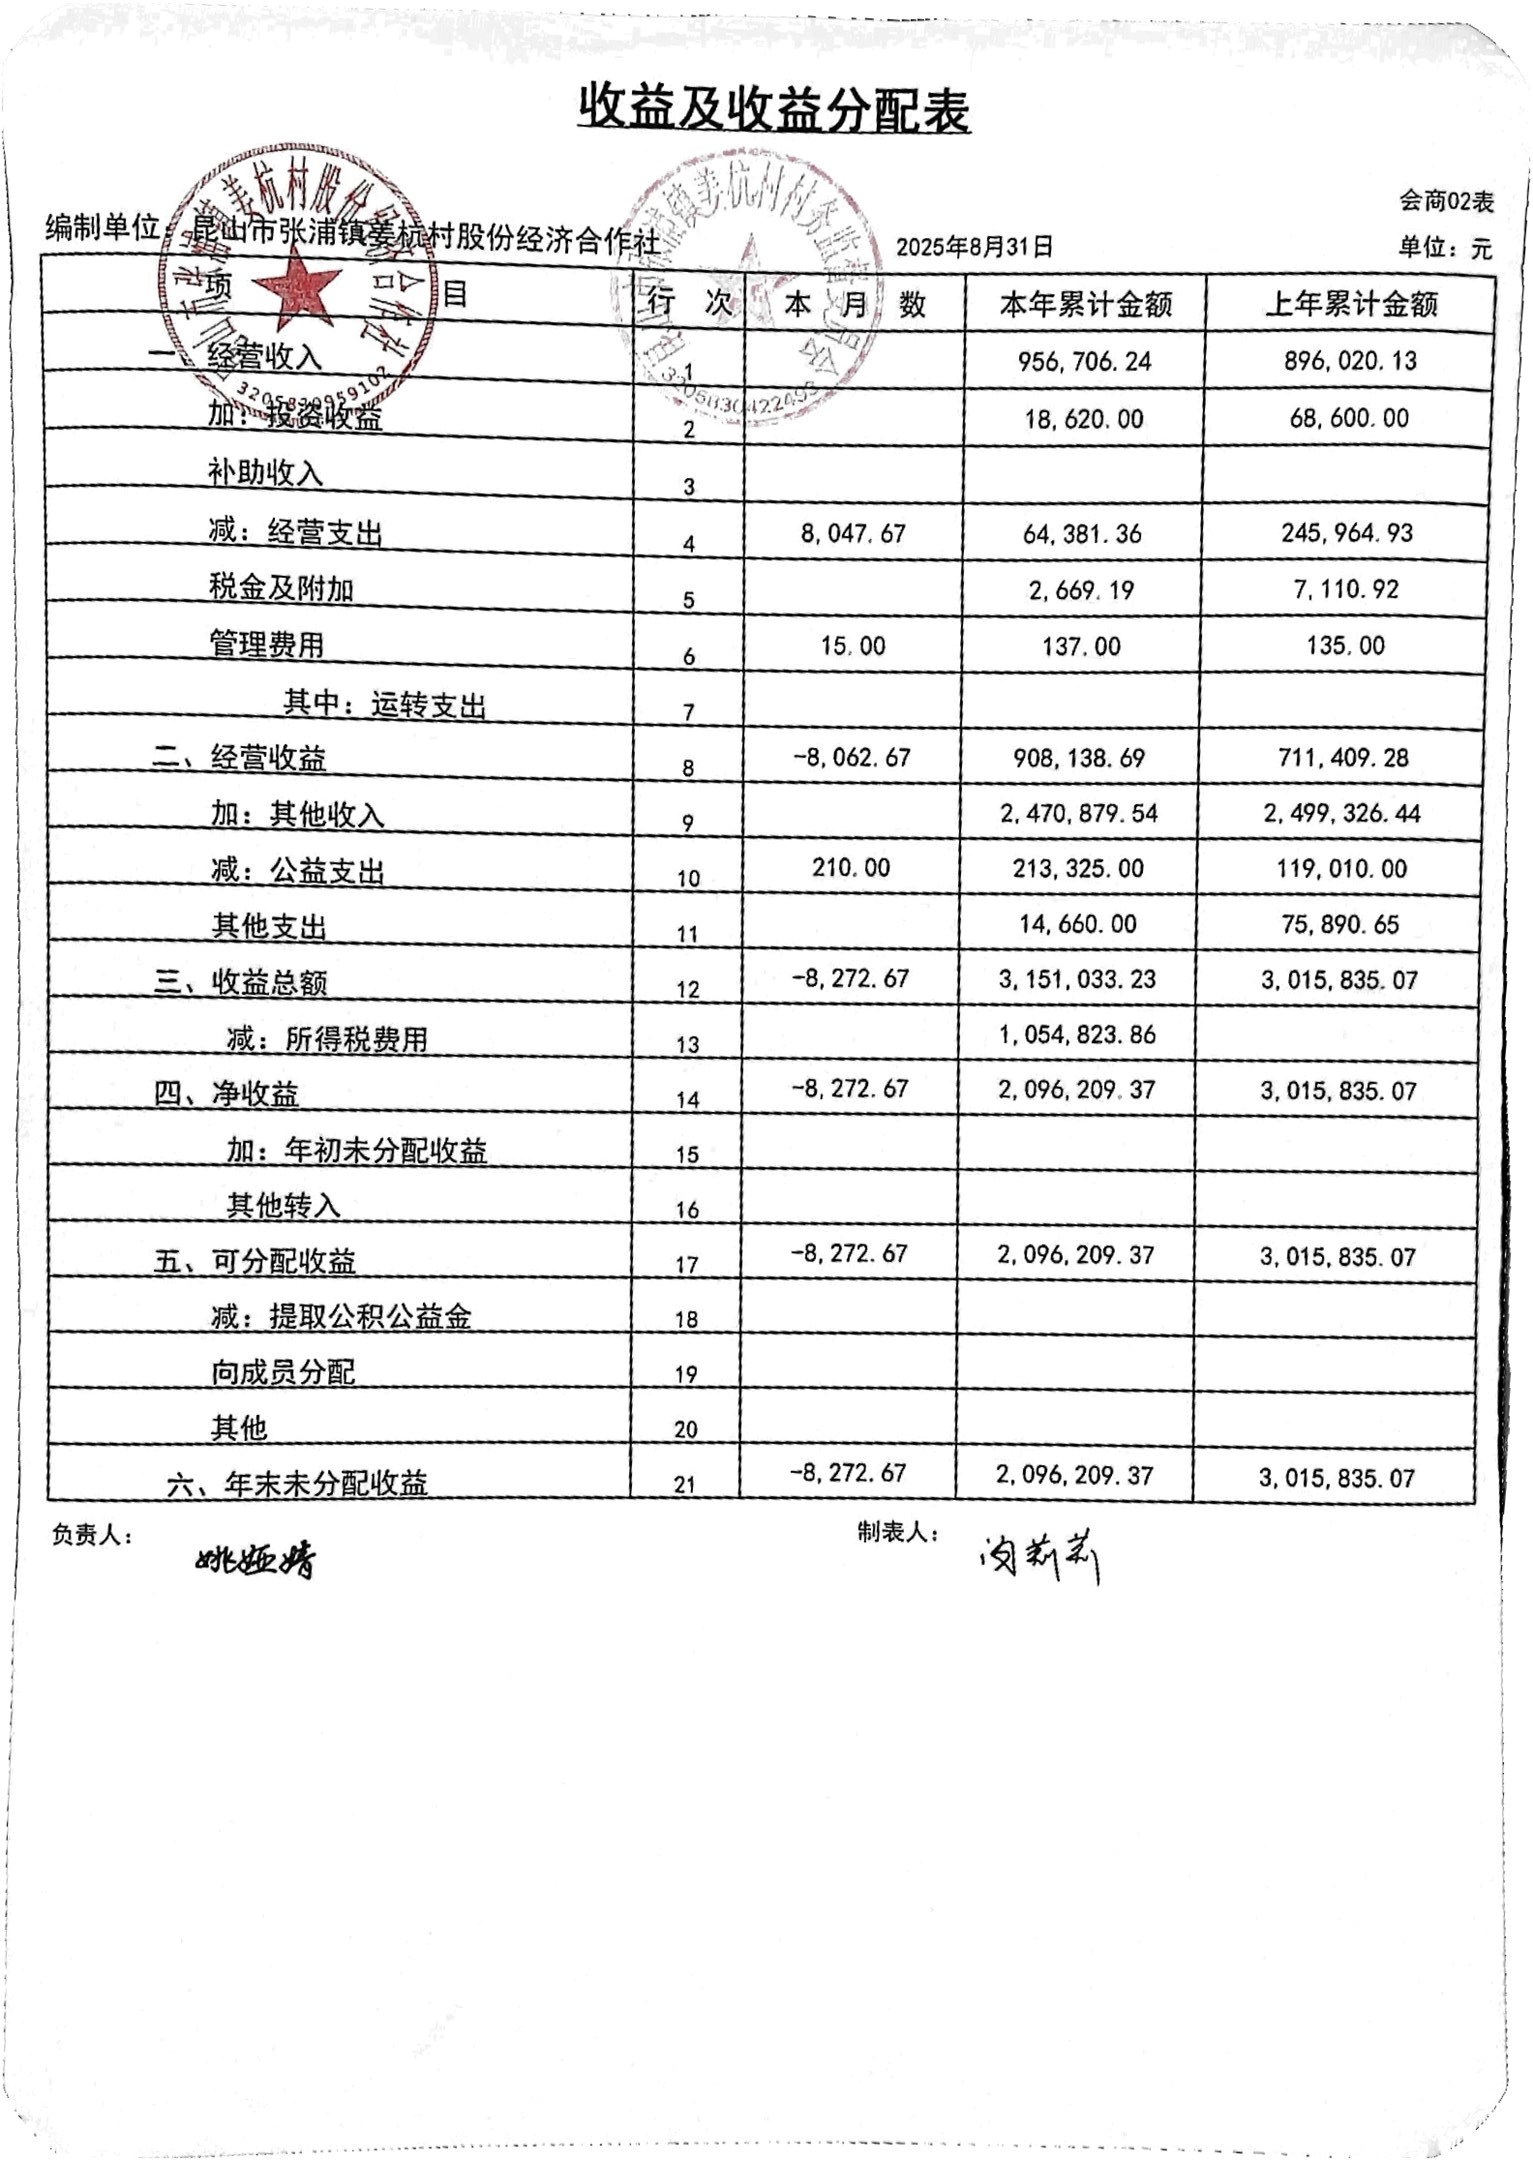 收益及收益分配表
会商02表
编制单位：昆山市张浦镇姜杭村股份经济合作社 2025年8月31日 单位：元
项 目 行 次 本 月 数 本年累计金额 上年累计金额
一、经营收入 1 956,706.24 896,020.13
加：投资收益 2 18,620.00 68,600.00
补助收入 3
减：经营支出 4 8,047.67 64,381.36 245,964.93
税金及附加 5 2,669.19 7,110.92
管理费用 6 15.00 137.00 135.00
其中：运转支出 7
二、经营收益 8 -8,062.67 908,138.69 711,409.28
加：其他收入 9 2,470,879.54 2,499,326.44
减：公益支出 10 210.00 213,325.00 119,010.00
其他支出 11 14,660.00 75,890.65
三、收益总额 12 -8,272.67 3,151,033.23 3,015,835.07
减：所得税费用 13 1,054,823.86
四、净收益 14 -8,272.67 2,096,209.37 3,015,835.07
加：年初未分配收益 15
其他转入 16
五、可分配收益 17 -8,272.67 2,096,209.37 3,015,835.07
减：提取公积公益金 18
向成员分配 19
其他 20
六、年末未分配收益 21 -8,272.67 2,096,209.37 3,015,835.07
负责人： 姚娅婧 制表人： 闵莉莉
昆山市张浦镇姜杭村股份经济合作社
3205830959102
昆山市张浦镇姜杭村村务监督委员会